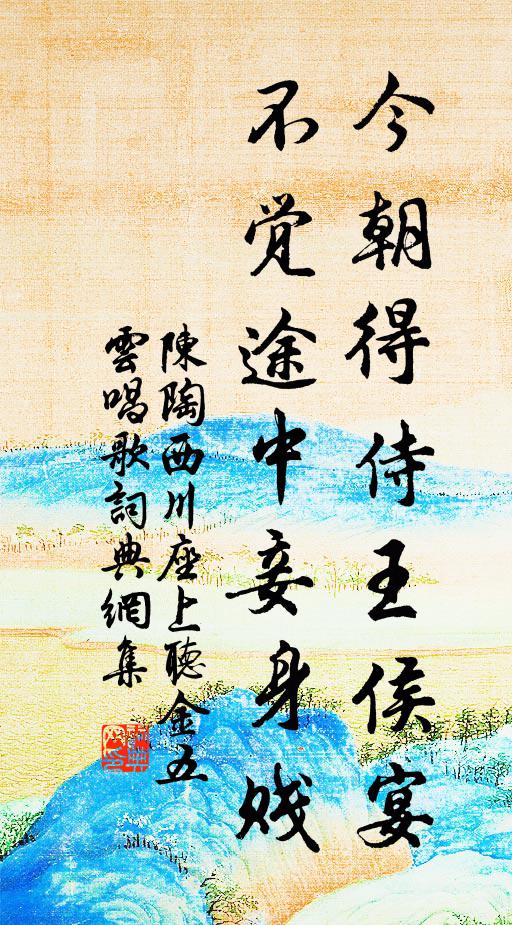 今朝得侍王侯宴
不觉途中妾身贱
陳陶西川座上聽金五
雲唱歌詞典網集